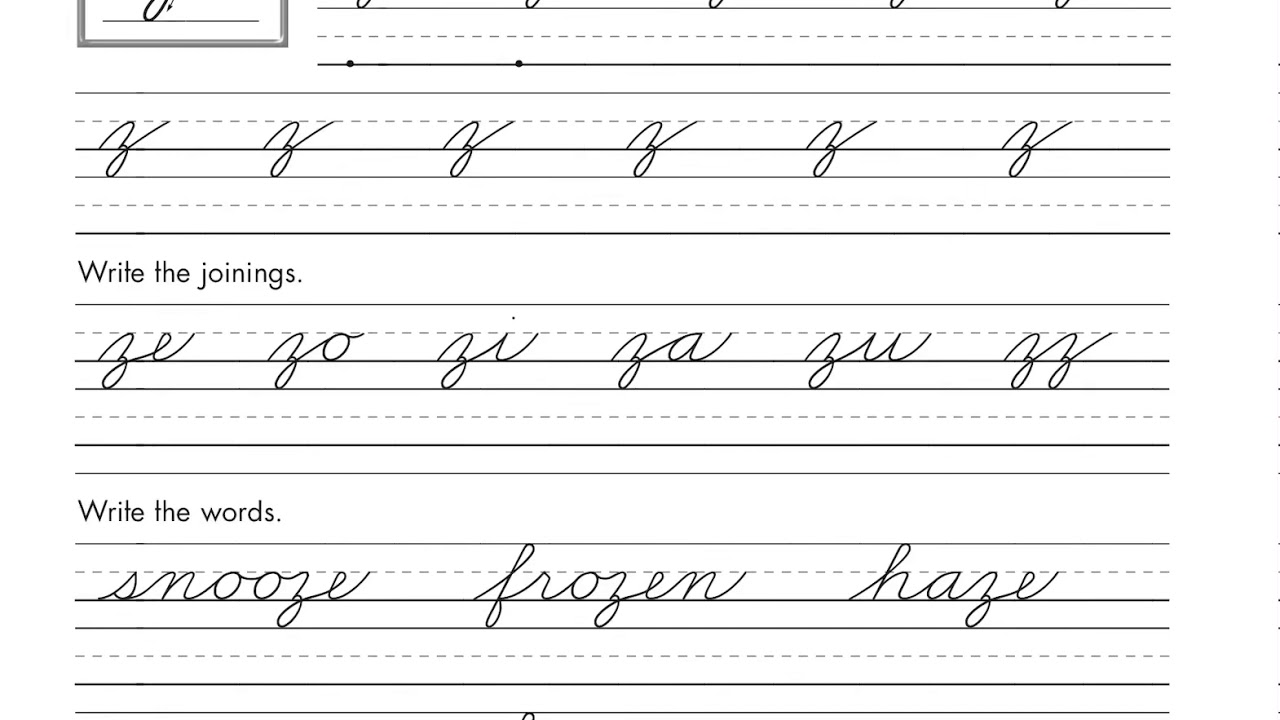 z z z z z z
Write the joinings.
ze zo zi za zu zz
Write the words.
snooze frozen haze